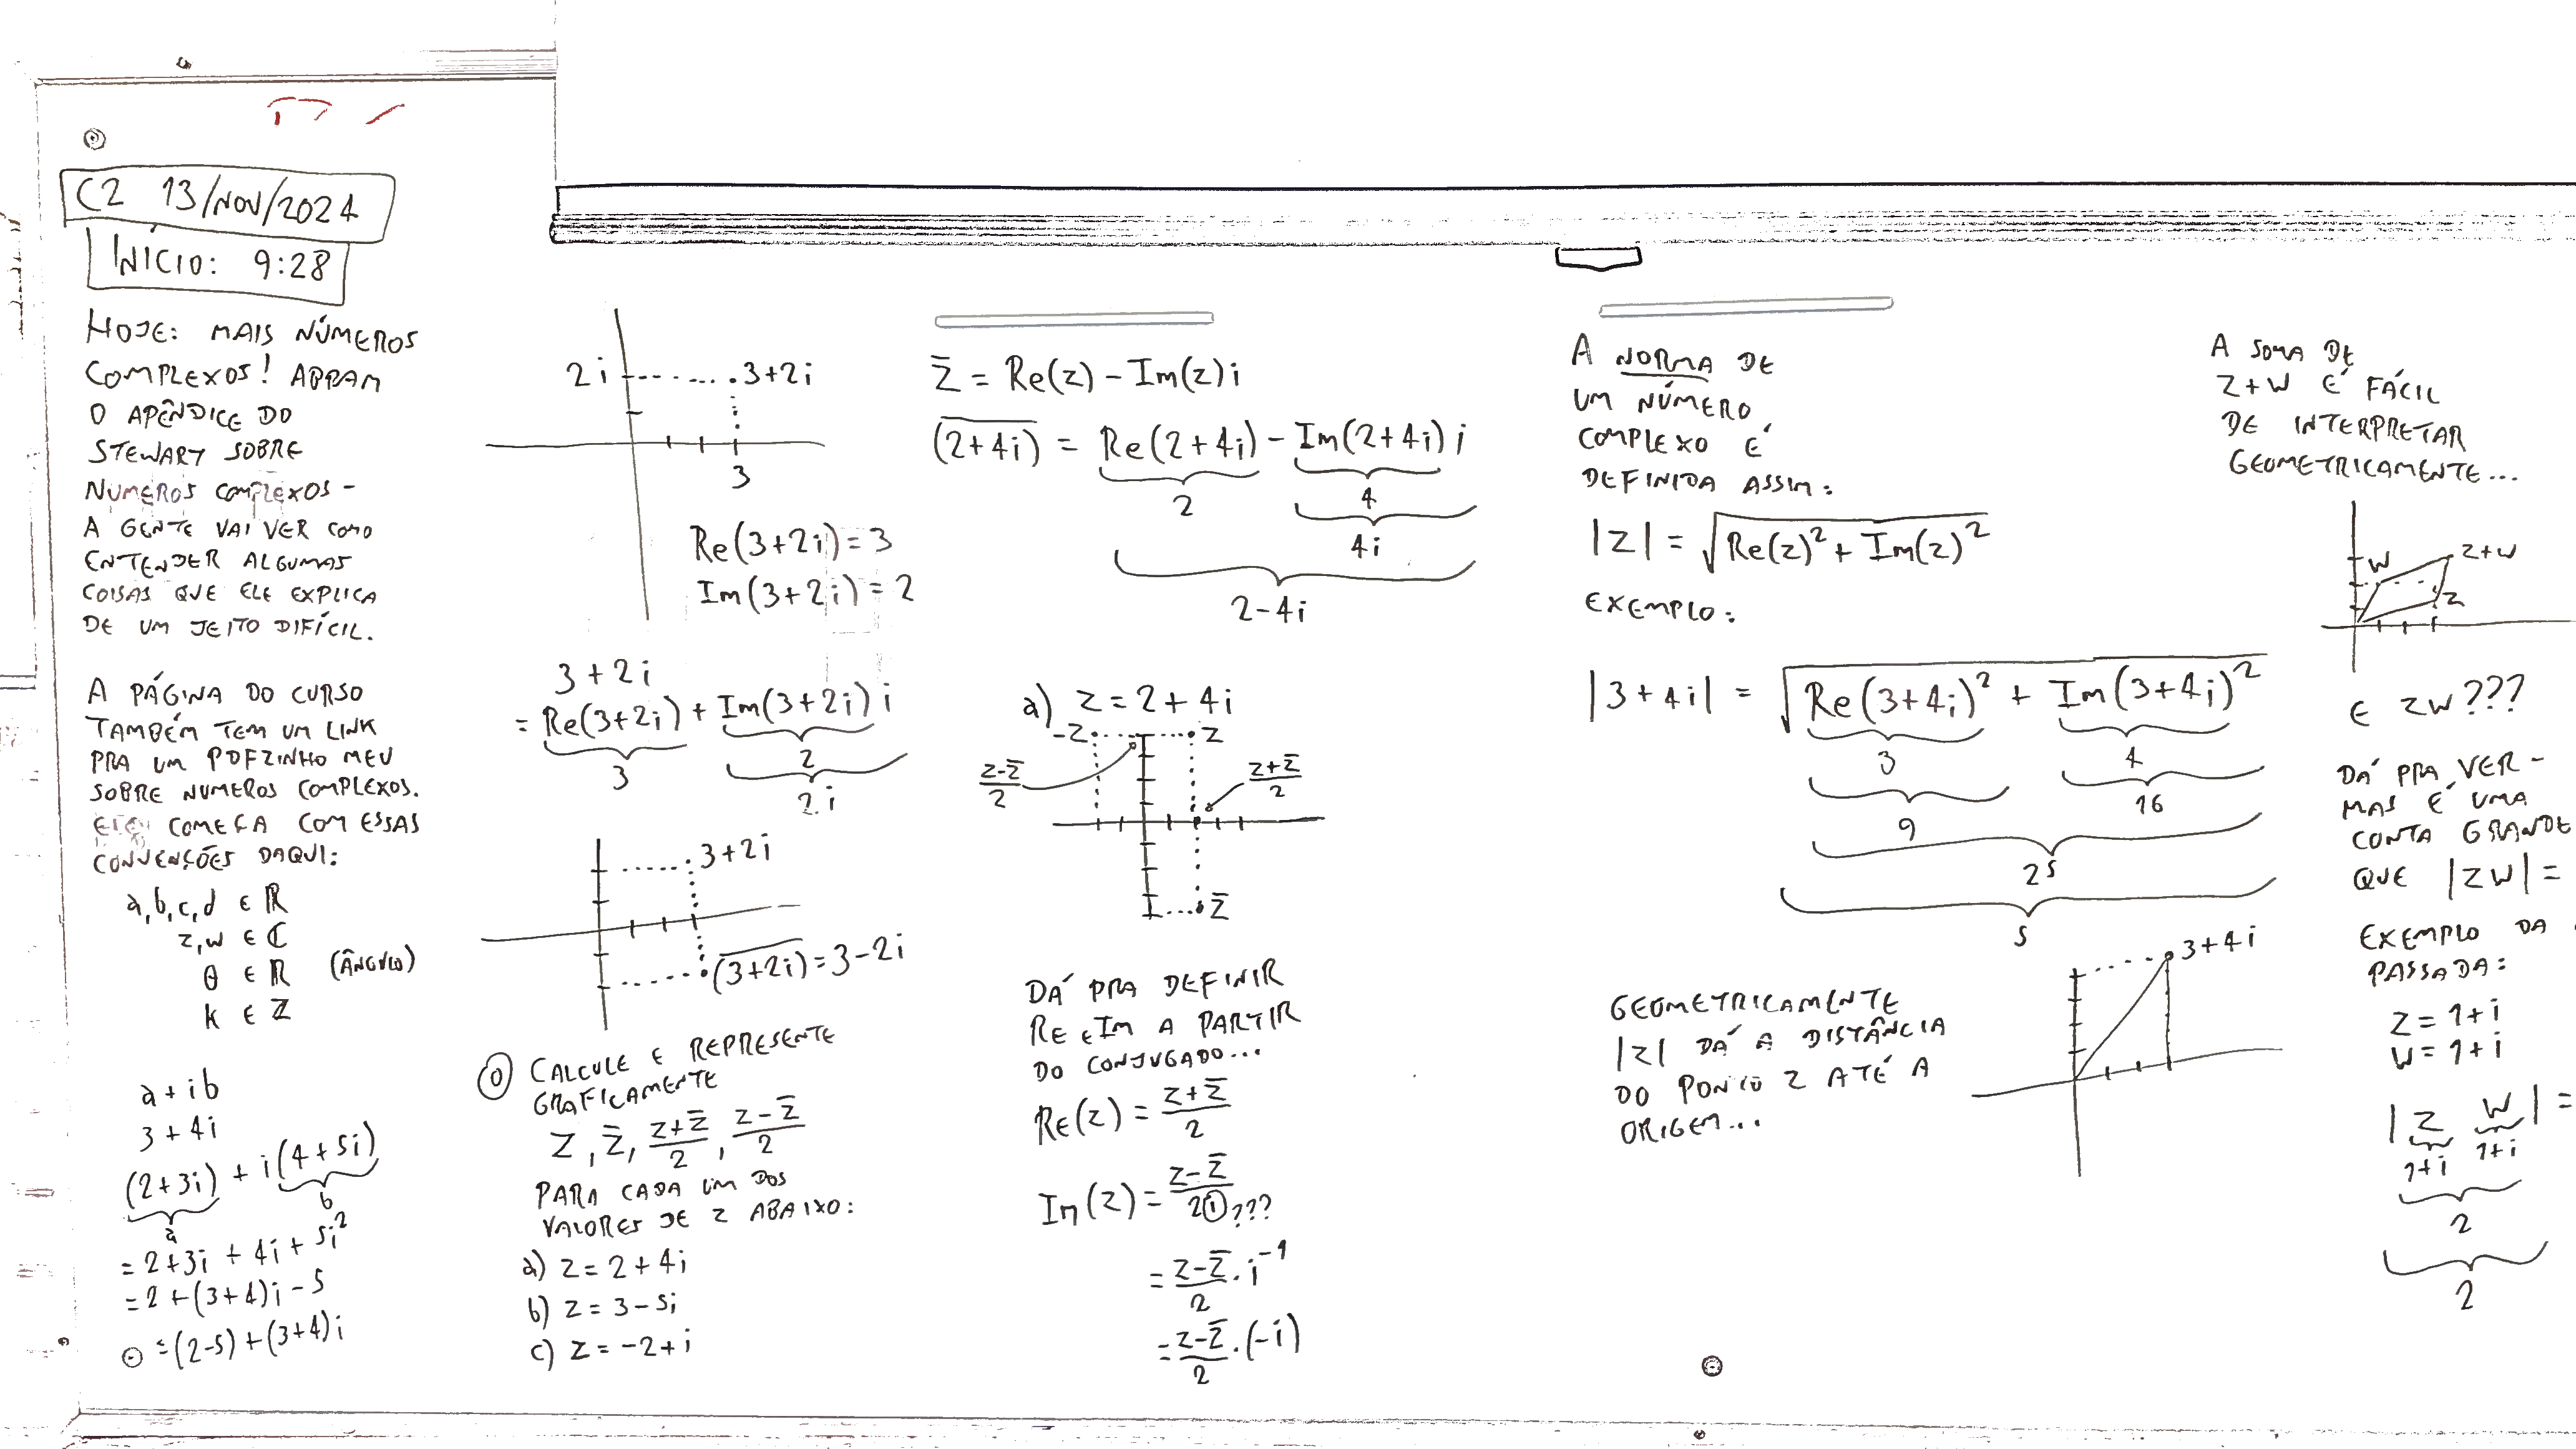 C2 13/NOV/2024
INÍCIO: 9:28
HOJE: MAIS NÚMEROS
COMPLEXOS! ABRAM
O APÊNDICE DO
STEWART SOBRE
NÚMEROS COMPLEXOS -
A GENTE VAI VER COMO
ENTENDER ALGUMAS
COISAS QUE ELE EXPLICA
DE UM JEITO DIFÍCIL.
A PÁGINA DO CURSO
TAMBÉM TEM UM LINK
PRA UM PDFZINHO MEU
SOBRE NUMEROS COMPLEXOS.
ELE COMEÇA COM ESSAS
CONVENÇÕES DAQUI:
a,b,c,d ∈ ℝ
z,w ∈ ℂ
θ ∈ ℝ (ÂNGULO)
k ∈ ℤ
a + ib
3 + 4i
(2+3i) + i(4+5i)
a b
= 2+3i + 4i + 5i²
= 2+(3+4)i - 5
= (2-5) + (3+4)i
2i 3+2i
3
Re(3+2i) = 3
Im(3+2i) = 2
3 + 2i
= Re(3+2i) + Im(3+2i) i
3 2
2i
3+2i
\overline{(3+2i)} = 3-2i
⓪ CALCULE E REPRESENTE
GRAFICAMENTE
z, z̄, (z+z̄)/2, (z-z̄)/2
PARA CADA UM DOS
VALORES DE z ABAIXO:
a) z = 2+4i
b) z = 3-5i
c) z = -2+i
z̄ = Re(z) - Im(z)i
\overline{(2+4i)} = Re(2+4i) - Im(2+4i) i
2 4
4i
2-4i
a) z = 2+4i
-z̄ z
(z-z̄)/2 (z+z̄)/2
z̄
DÁ PRA DEFINIR
RE E IM A PARTIR
DO CONJUGADO...
Re(z) = (z+z̄)/2
Im(z) = (z-z̄)/2i ???
= (z-z̄)/2 · i⁻¹
= (z-z̄)/2 · (-i)
A NORMA DE
UM NÚMERO
COMPLEXO É
DEFINIDA ASSIM:
|z| = √(Re(z)² + Im(z)²)
EXEMPLO:
|3+4i| = √(Re(3+4i)² + Im(3+4i)²)
3 4
9 16
25
5
GEOMETRICAMENTE
|z| DÁ A DISTÂNCIA
DO PONTO z ATÉ A
ORIGEM...
3+4i
A SOMA DE
z+w É FÁCIL
DE INTERPRETAR
GEOMETRICAMENTE...
w z+w
z
E zw???
DÁ PRA VER -
MAS É UMA
CONTA GRANDE
QUE |zw| =
EXEMPLO DA
PASSADA:
z = 1+i
w = 1+i
| z w | =
1+i 1+i
2
2